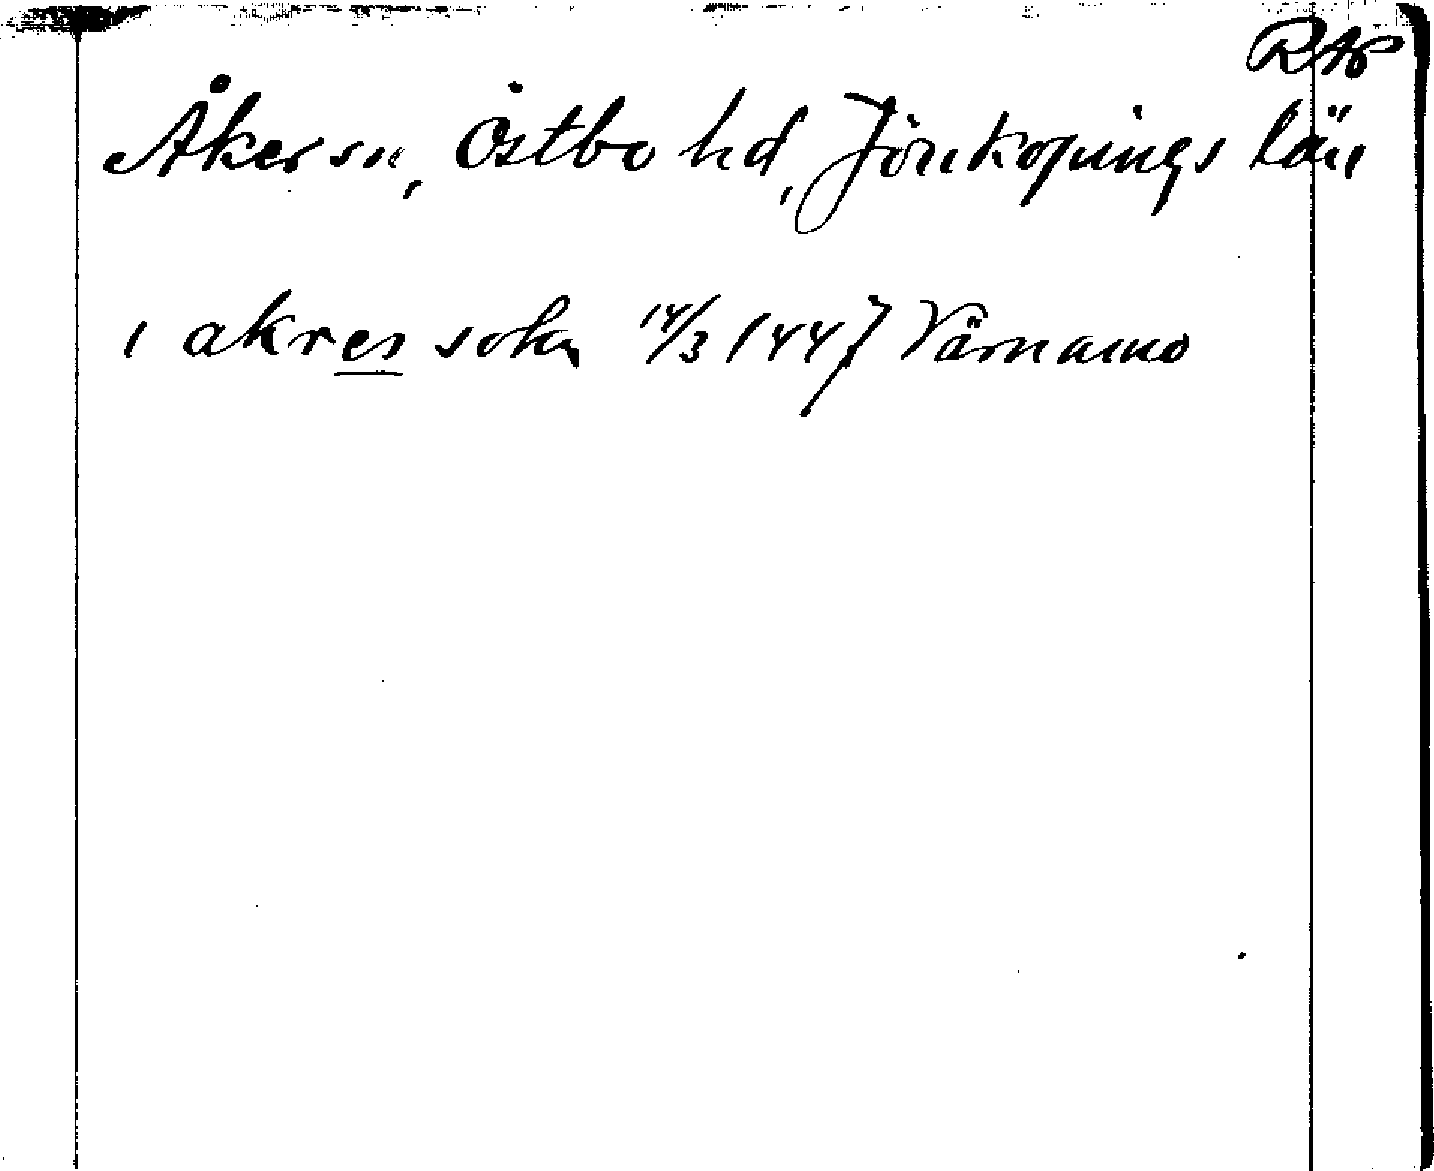 RAP
Åker sn, Östbo hd, Jönköpings län
i akres sokn 14/3 1447 Värnamo